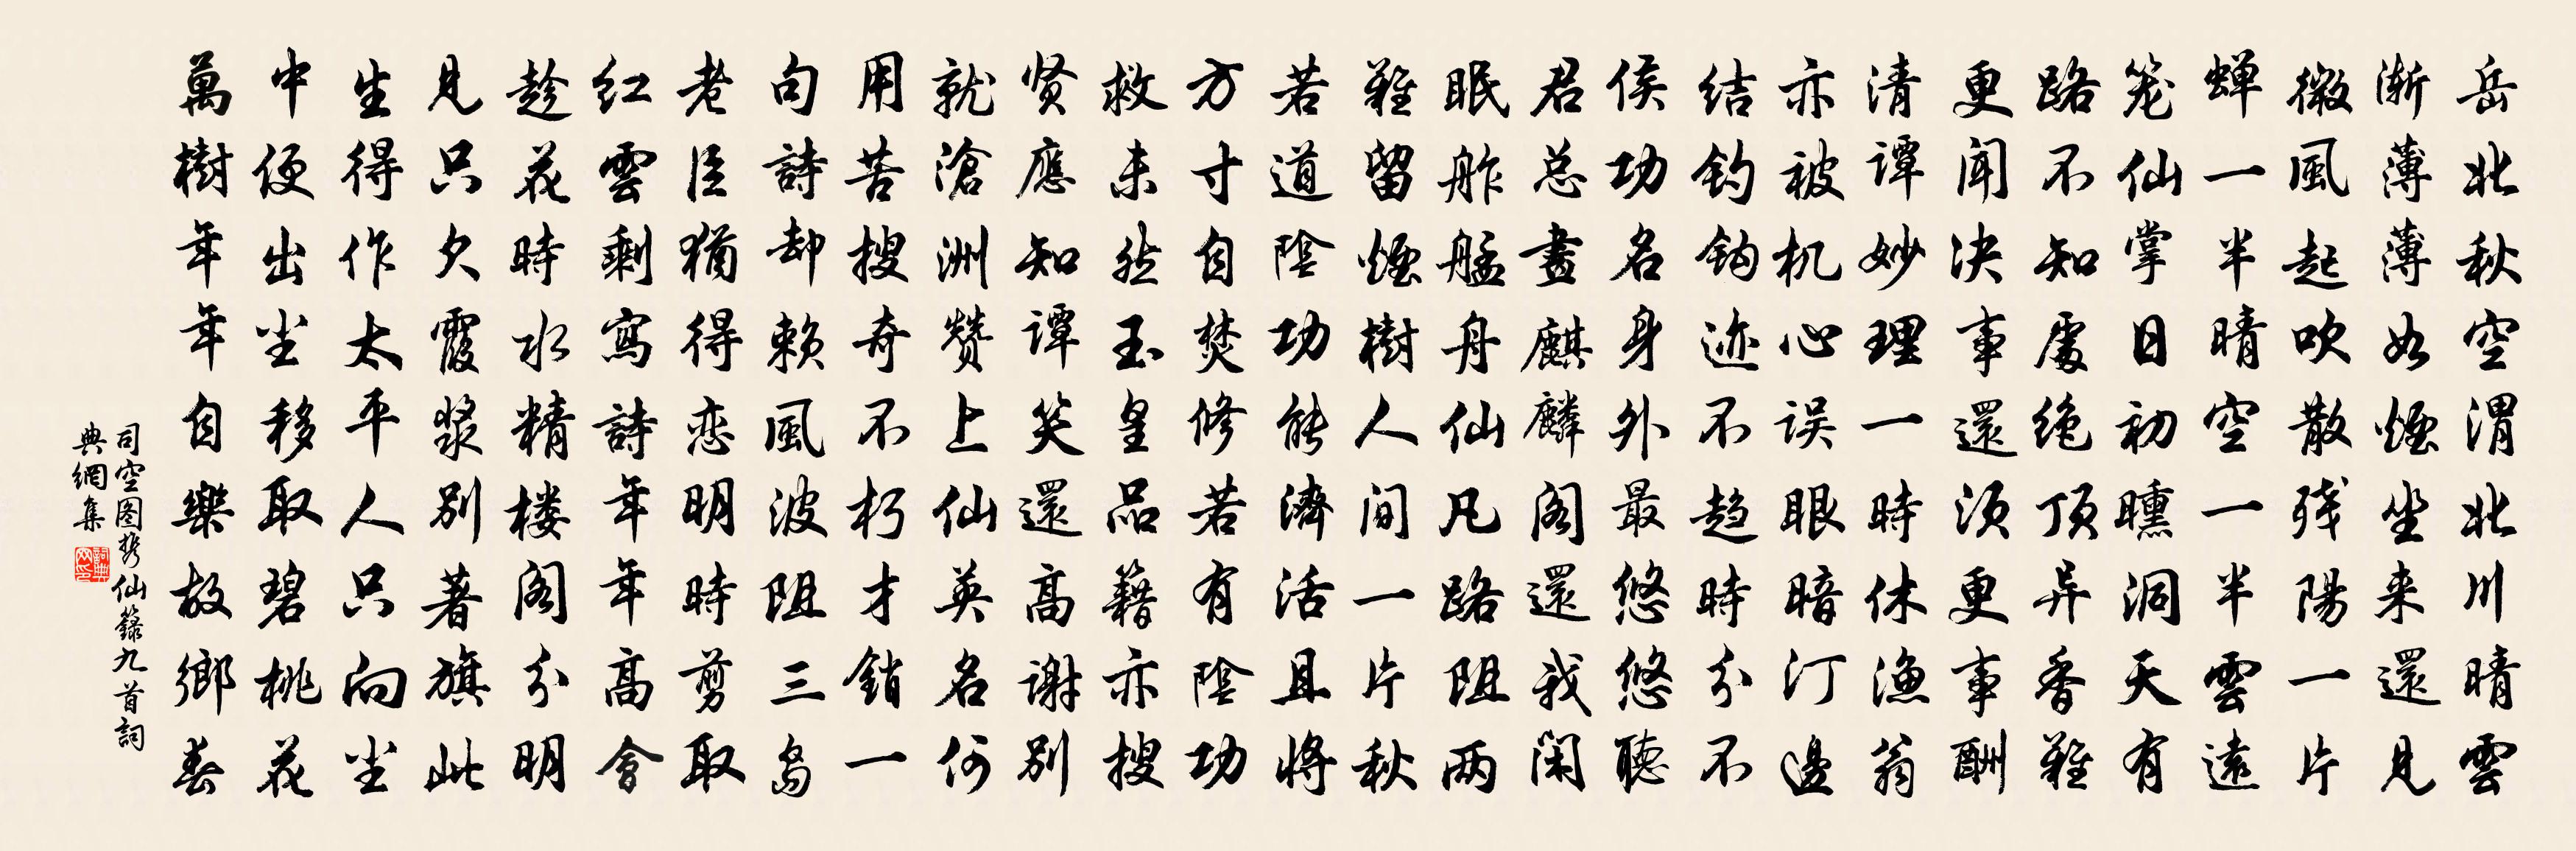 岳北秋空渭北川晴雲
渐薄薄如煙坐来還見
微風起吹散残陽一片
蝉一半晴空一半雲遠
笼仙掌日初曛洞天有
路不知處绝顶异香難
更闻决事還须更事酬
清谭妙理一時休渔翁
亦被机心误眼暗汀邊
结钓钩迹不趋時分不
侯功名身外最悠悠聽
君总畫麒麟阁還我闲
眠舴艋舟仙凡路阻两
難留煙樹人间一片秋
若道陰功能濟活且将
方寸自焚修若有陰功
救未然玉皇品籍亦搜
贤應知谭笑還高谢别
就滄洲赞上仙英名何
用苦搜奇不朽才銷一
句詩却赖風波阻三島
老臣猶得恋明時剪取
红雲剩寫詩年年高會
趁花時水精楼阁分明
見只欠霞浆别著旗此
生得作太平人只向尘
中便出尘移取碧桃花
萬樹年年自樂故鄉春
司空图携仙籙九首詞
典網集
詞典网印